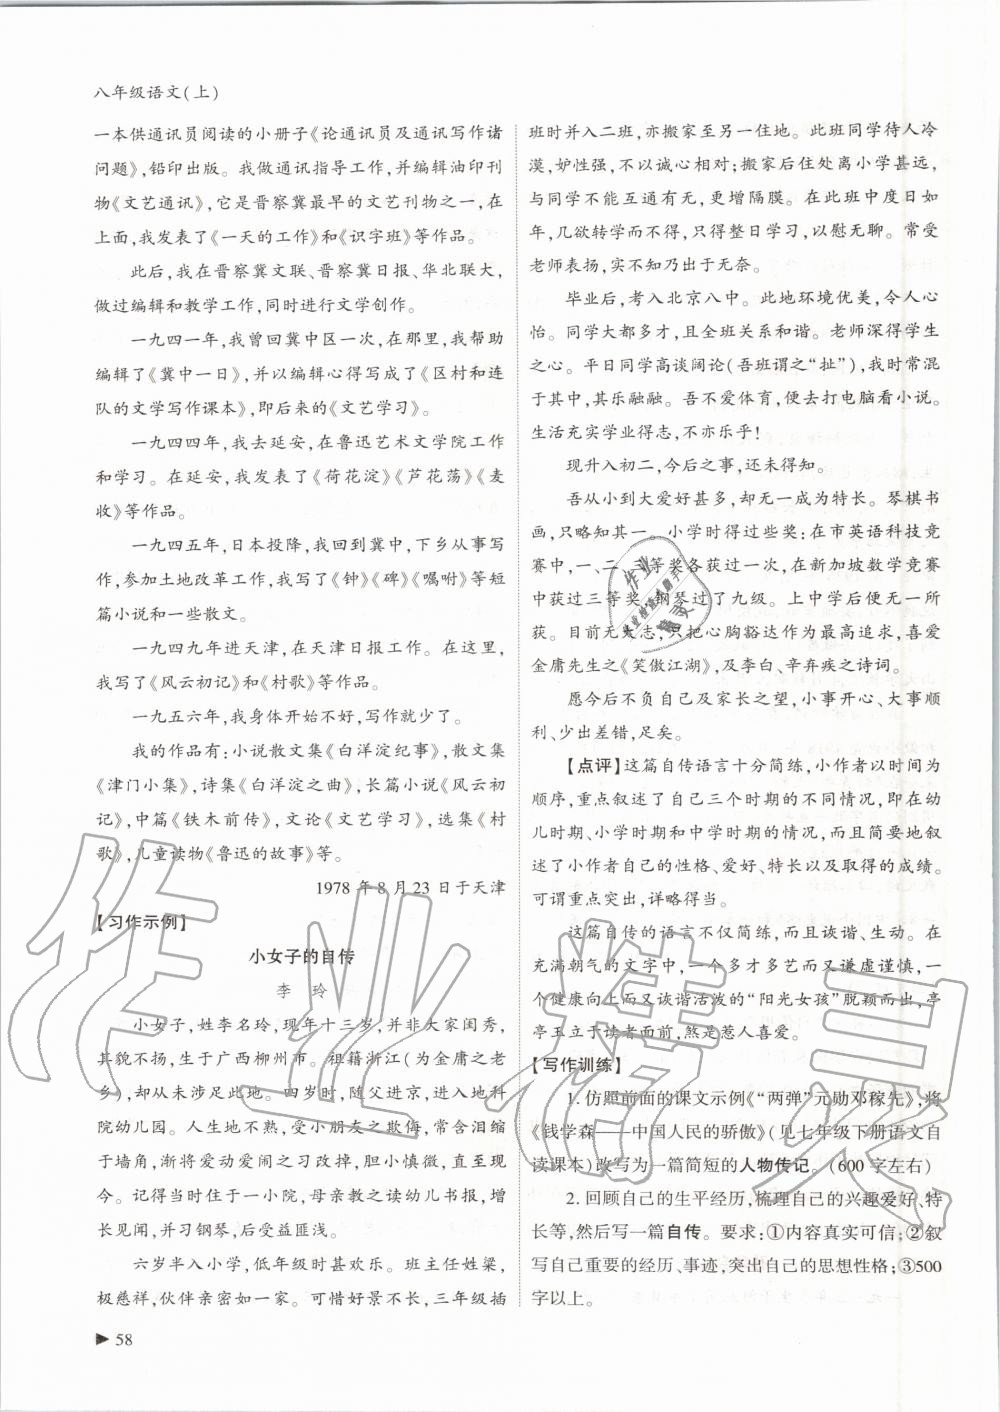 八年级语文(上)
一本供通讯员阅读的小册子《论通讯员及通讯写作诸
问题》,铅印出版。我做通讯指导工作,并编辑油印刊
物《文艺通讯》,它是晋察冀最早的文艺刊物之一,在
上面,我发表了《一天的工作》和《识字班》等作品。
此后,我在晋察冀文联、晋察冀日报、华北联大,
做过编辑和教学工作,同时进行文学创作。
一九四一年,我曾回冀中区一次,在那里,我帮助
编辑了《冀中一日》,并以编辑心得写成了《区村和连
队的文学写作课本》,即后来的《文艺学习》。
一九四四年,我去延安,在鲁迅艺术文学院工作
和学习。在延安,我发表了《荷花淀》《芦花荡》《麦
收》等作品。
一九四五年,日本投降,我回到冀中,下乡从事写
作,参加土地改革工作,我写了《钟》《碑》《嘱咐》等短
篇小说和一些散文。
一九四九年进天津,在天津日报工作。在这里,
我写了《风云初记》和《村歌》等作品。
一九五六年,我身体开始不好,写作就少了。
我的作品有:小说散文集《白洋淀纪事》,散文集
《津门小集》,诗集《白洋淀之曲》,长篇小说《风云初
记》,中篇《铁木前传》,文论《文艺学习》,选集《村
歌》,儿童读物《鲁迅的故事》等。
1978年8月23日于天津
【习作示例】
小女子的自传
李 玲
小女子,姓李名玲,现年十三岁,并非大家闺秀,
其貌不扬,生于广西柳州市。祖籍浙江(为金庸之老
乡),却从未涉足此地。四岁时,随父进京,进入地科
院幼儿园。人生地不熟,受小朋友之欺侮,常含泪缩
于墙角,渐将爱动爱闹之习改掉,胆小慎微,直至今
然。记得当时住于一小院,母亲教之读幼儿书报,增
长见闻,并习钢琴,后受益匪浅。
六岁半入小学,低年级时甚欢乐。班主任姓梁,
极慈祥,伙伴亲密如一家。可惜好景不长,三年级插
班时并入二班,亦搬家至另一住地。此班同学待人冷
漠,妒性强,不以诚心相对;搬家后住处离小学甚远,
与同学不能互通有无,更增隔膜。在此班中度日如
年,几欲转学而不得,只得整日学习,以慰无聊。常受
老师表扬,实不知乃出于无奈。
毕业后,考入北京八中。此地环境优美,令人心
怡。同学大都多才,且全班关系和谐。老师深得学生
之心。平日同学高谈阔论(吾班谓之“扯”),我时常混
于其中,其乐融融。吾不爱体育,便去打电脑看小说。
生活充实学业得志,不亦乐乎!
现升入初二,今后之事,还未得知。
吾从小到大爱好甚多,却无一成为特长。琴棋书
画,只略知其一。小学时得过些奖:在市英语科技竞
赛中,一、二、三等奖各获过一次,在新加坡数学竞赛
中获过三等奖,钢琴过了九级。上中学后便无一所
获。目前无大志,只把心胸豁达作为最高追求,喜爱
金庸先生之《笑傲江湖》,及李白、辛弃疾之诗词。
愿今后不负自己及家长之望,小事开心、大事顺
利、少出差错,足矣。
【点评】这篇自传语言十分简练,小作者以时间为
顺序,重点叙述了自己三个时期的不同情况,即在幼
儿时期、小学时期和中学时期的情况,而且简要地叙
述了小作者自己的性格、爱好、特长以及取得的成绩。
可谓重点突出,详略得当。
这篇自传的语言不仅简练,而且诙谐、生动。在
充满朝气的文字中,一个多才多艺而又谦虚谨慎,一
个健康向上而又诙谐活泼的“阳光女孩”脱颖而出,亭
亭玉立于读者面前,煞是惹人喜爱。
【写作训练】
1.仿照前面的课文示例《“两弹”元勋邓稼先》,将
《钱学森——中国人民的骄傲》(见七年级下册语文自
读课本)改写为一篇简短的人物传记。(600字左右)
2.回顾自己的生平经历,梳理自己的兴趣爱好、特
长等,然后写一篇自传。要求:①内容真实可信;②叙
写自己重要的经历、事迹,突出自己的思想性格;③500
字以上。
58
作业精灵